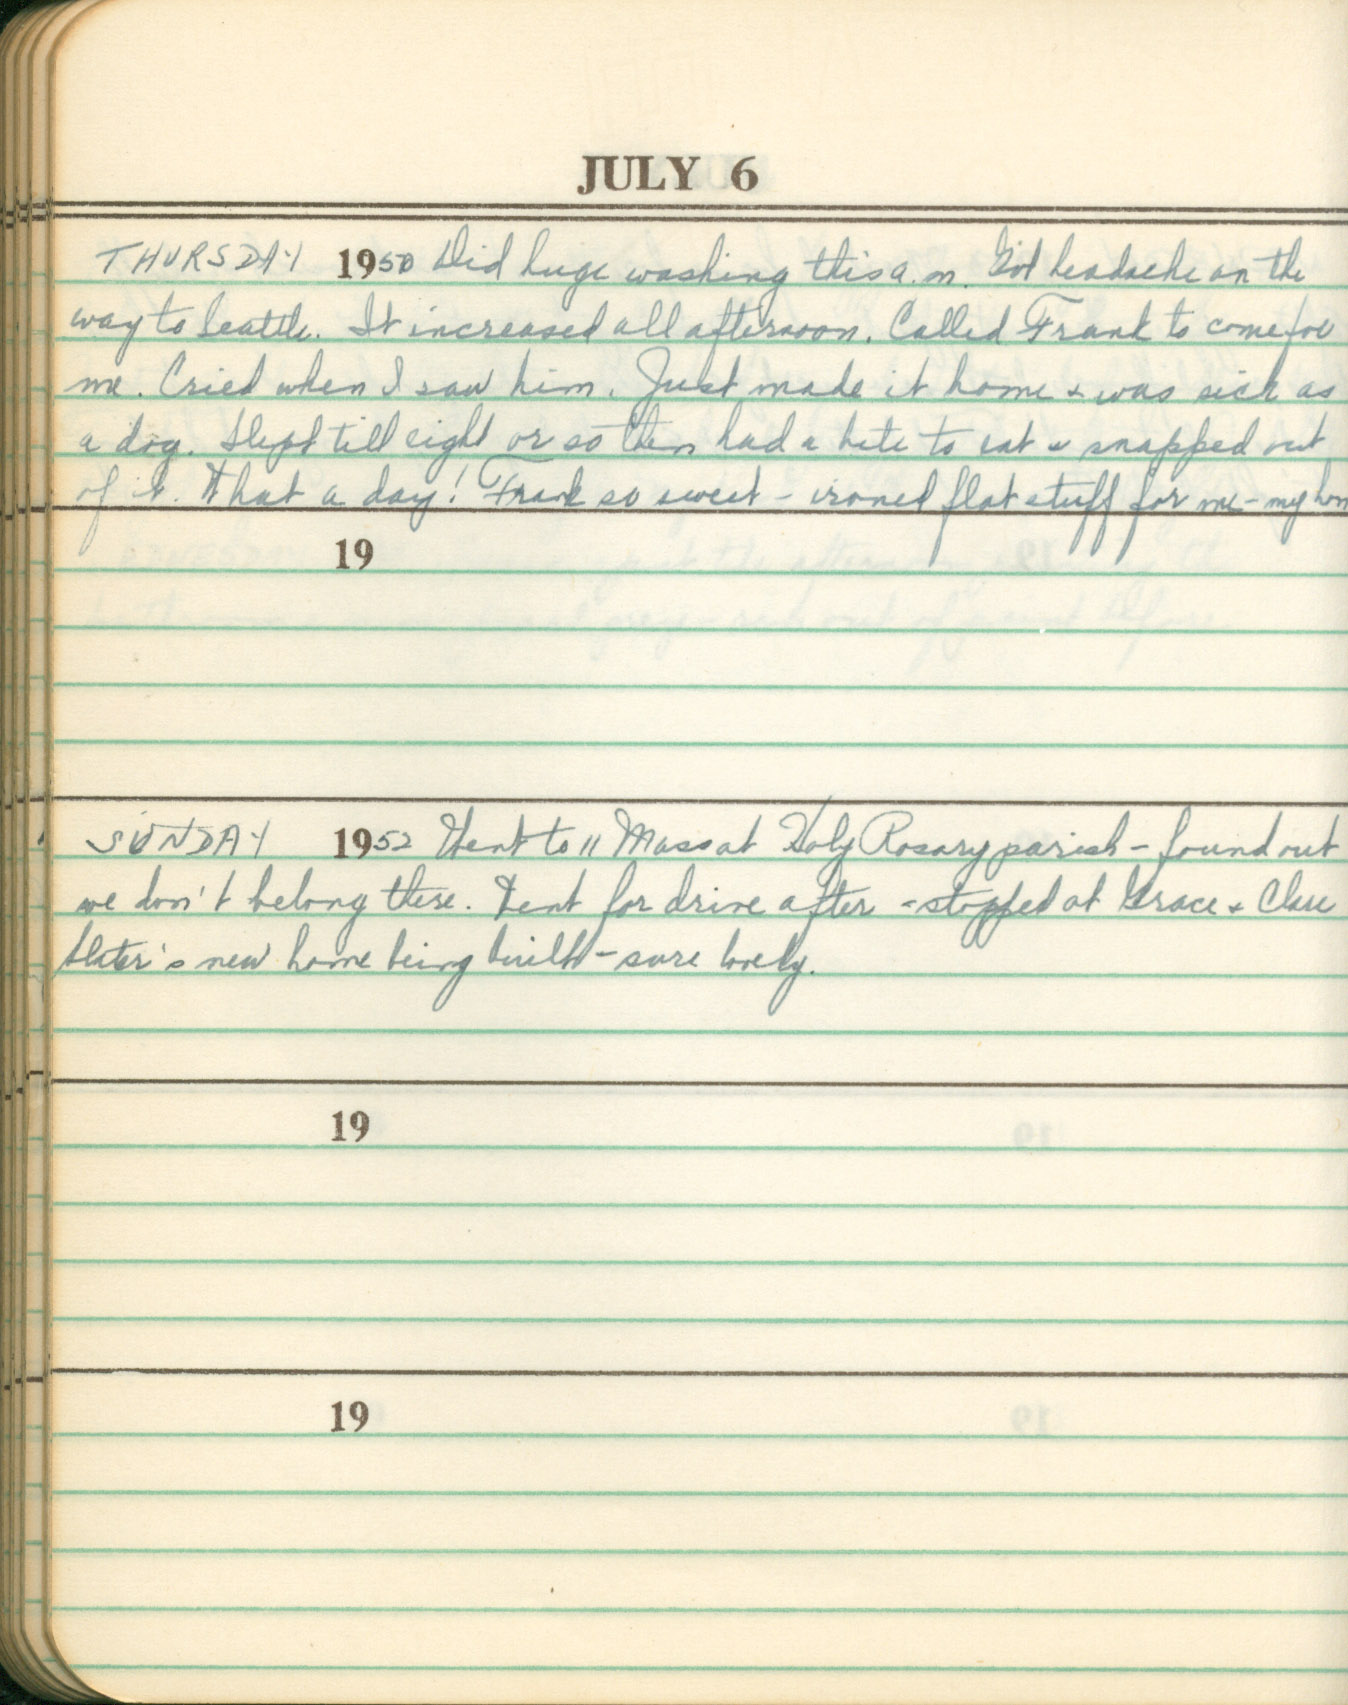 JULY 6
THURSDAY 1950 Did huge washing this a.m. Got headache on the
way to Seattle. It increased all afternoon. Called Frank to come for
me. Cried when I saw him. Just made it home & was sick as
a dog. Slept till eight or so then had a bite to eat & snapped out
of it. What a day! Frank so sweet - ironed flat stuff for me - my
19
SUNDAY 1952 Went to 11 Mass at Holy Rosary parish - found out
we don't belong there. Went for drive after - stopped at Grace & Clare
Slater's new home being built - sure lovely.
19
19